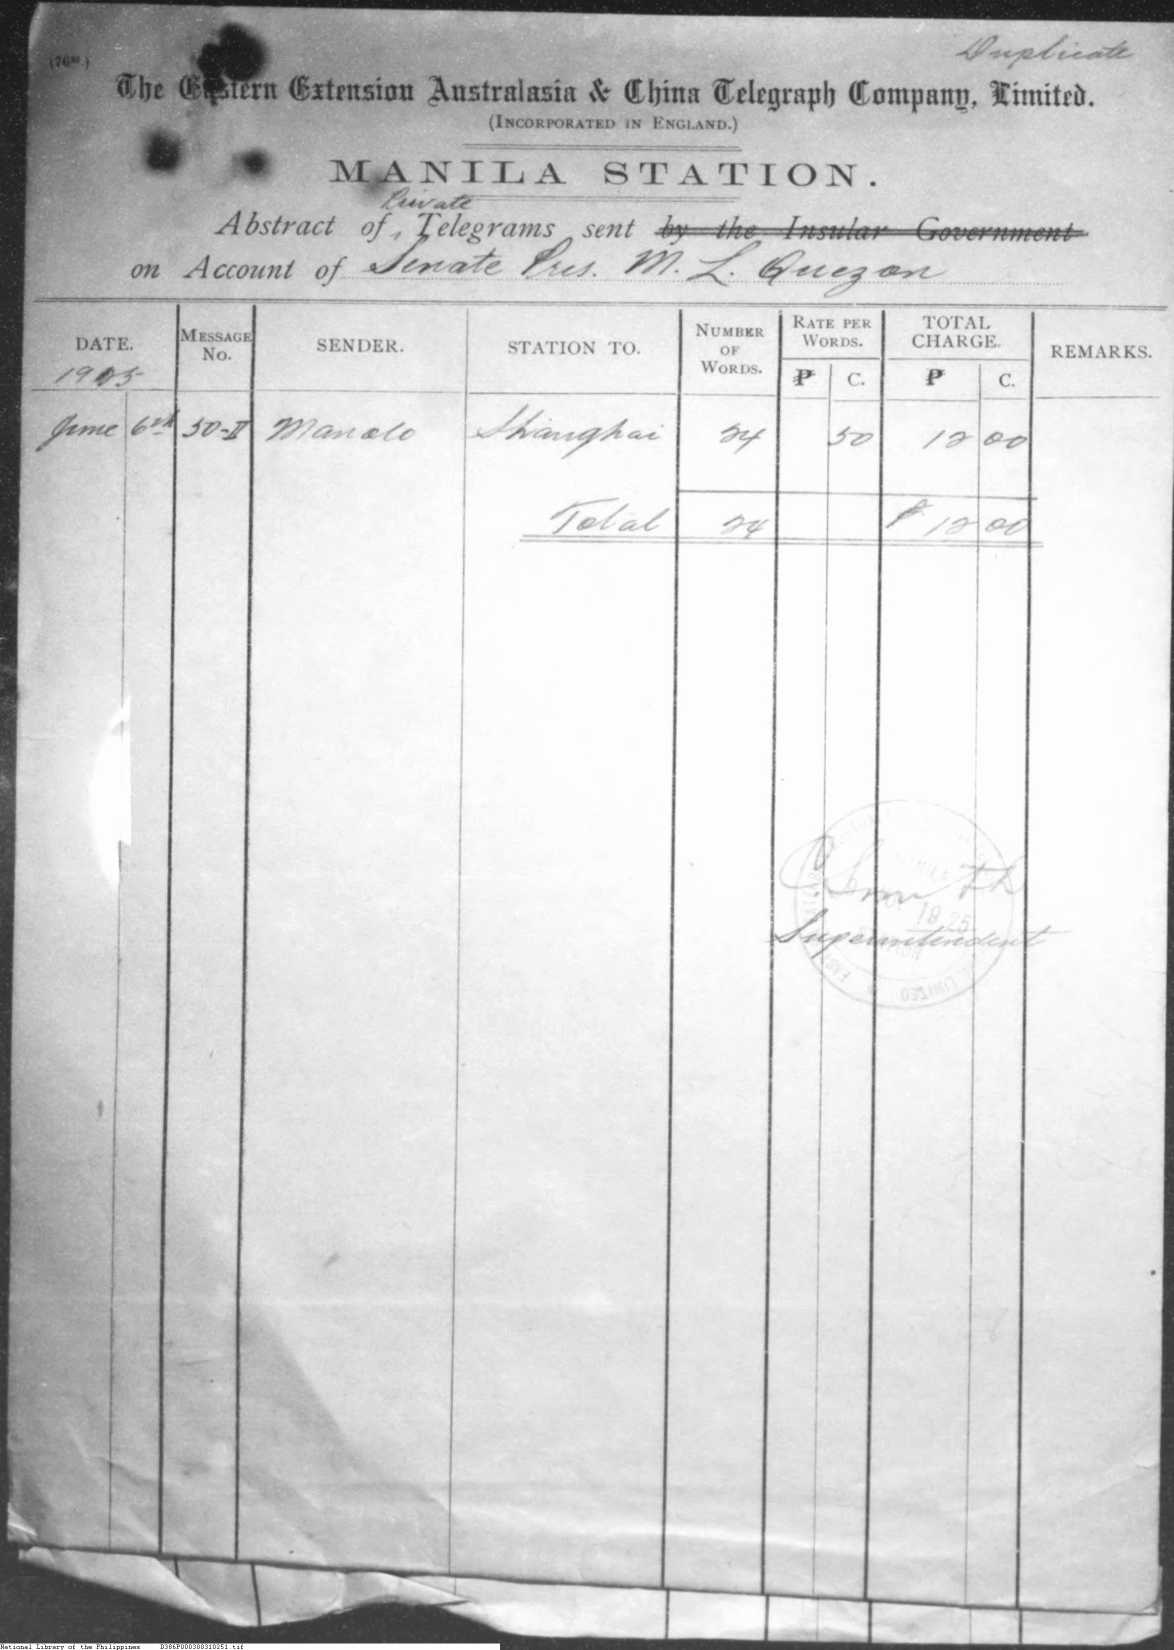 Duplicate
The Eastern Extension Australasia & China Telegraph Company, Limited.
(INCORPORATED IN ENGLAND.)
MANILA STATION.
Private
Abstract of , Telegrams sent by the Insular Government
on Account of Senate Pres. M. L. Quezon
DATE. MESSAGE No. SENDER. STATION TO. NUMBER OF WORDS. RATE PER WORDS. TOTAL CHARGE. REMARKS.
1925 ₱ C. ₱ C.
June 6th 50-II Manolo Shanghai 24 50 12 00
Total 24 ₱ 12 00
C. Smith
Superintendent
1925
LIMITED
National Library of the Philippines D386P000308310251.tif